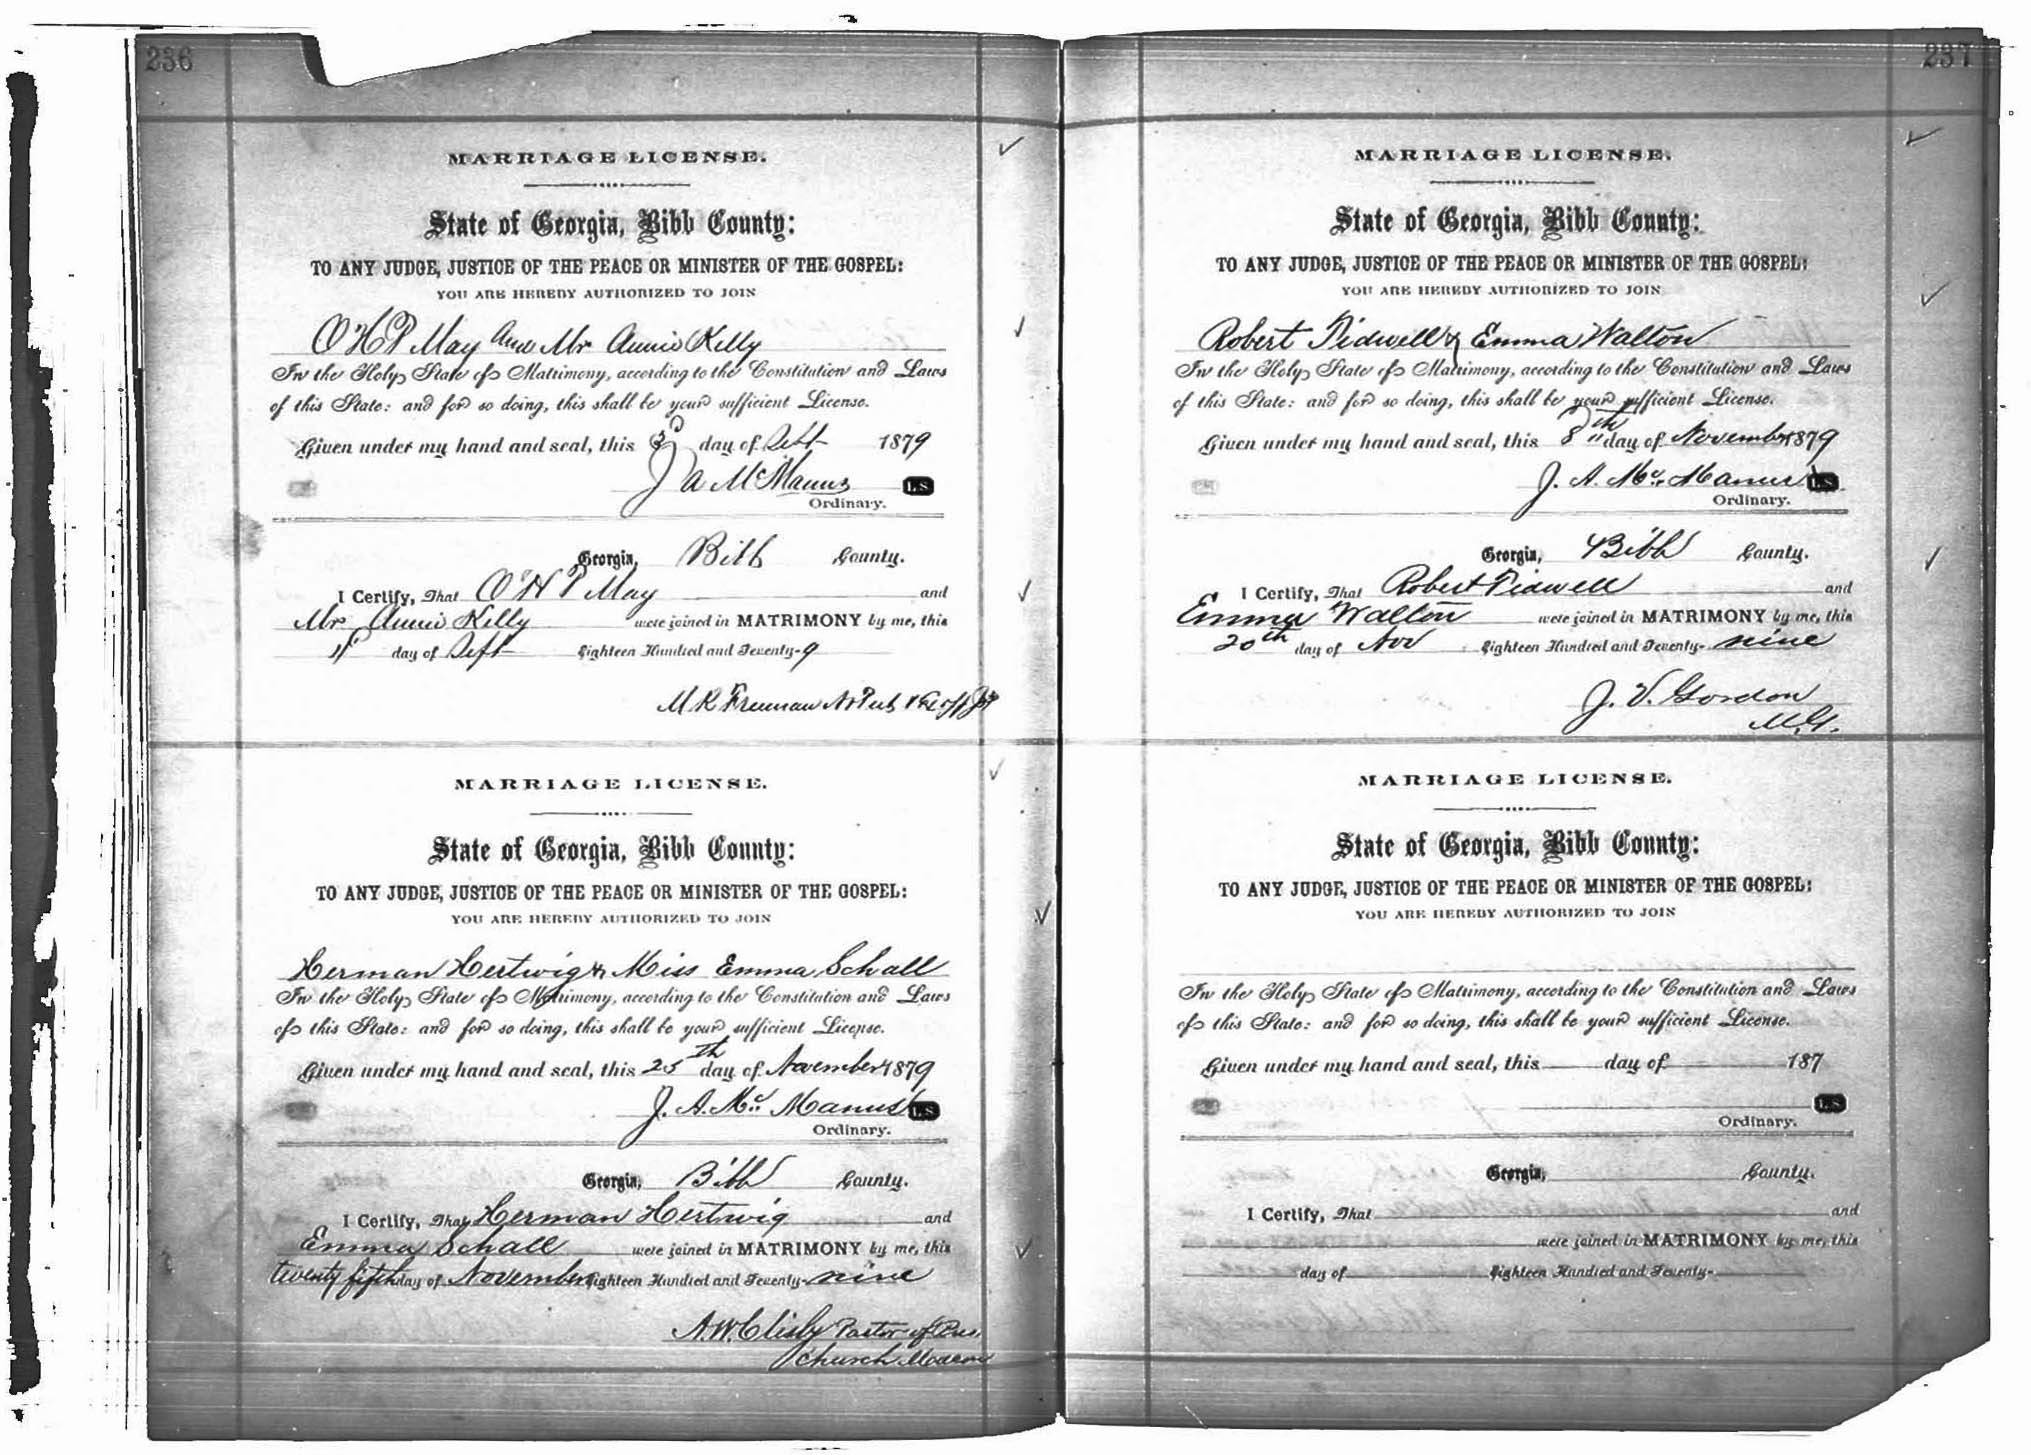 236
MARRIAGE LICENSE.
State of Georgia, Bibb County:
TO ANY JUDGE, JUSTICE OF THE PEACE OR MINISTER OF THE GOSPEL:
YOU ARE HEREBY AUTHORIZED TO JOIN
O H P May and Mrs Annie Kelly
In the Holy State of Matrimony, according to the Constitution and Laws
of this State: and for so doing, this shall be your sufficient License.
Given under my hand and seal, this 3 day of Sept 1879
J A McManus L S
Ordinary.
Georgia, Bibb County.
I Certify, That O H P May and
Mrs Annie Kelly were joined in MATRIMONY by me, this
day of Sept Eighteen Hundred and Seventy-9
M R Freeman
MARRIAGE LICENSE.
State of Georgia, Bibb County:
TO ANY JUDGE, JUSTICE OF THE PEACE OR MINISTER OF THE GOSPEL:
YOU ARE HEREBY AUTHORIZED TO JOIN
Herman Hertwig & Miss Emma Schall
In the Holy State of Matrimony, according to the Constitution and Laws
of this State: and for so doing, this shall be your sufficient License.
Given under my hand and seal, this 25th day of November 1879
J. A. Mc. Manus L S
Ordinary.
Georgia, Bibb County.
I Certify, That Herman Hertwig and
Emma Schall were joined in MATRIMONY by me, this
twenty fifth day of November Eighteen Hundred and Seventy-nine
A. W. Clisby Pastor of Pres.
Church Macon
237
MARRIAGE LICENSE.
State of Georgia, Bibb County:
TO ANY JUDGE, JUSTICE OF THE PEACE OR MINISTER OF THE GOSPEL:
YOU ARE HEREBY AUTHORIZED TO JOIN
Robert Tidwell & Emma Walton
In the Holy State of Matrimony, according to the Constitution and Laws
of this State: and for so doing, this shall be your sufficient License.
Given under my hand and seal, this 8th day of November 1879
J. A. Mc. Manus L S
Ordinary.
Georgia, Bibb County.
I Certify, That Robert Tidwell and
Emma Walton were joined in MATRIMONY by me, this
20th day of Nov Eighteen Hundred and Seventy-nine
J. V. Gordon
M.G.
MARRIAGE LICENSE.
State of Georgia, Bibb County:
TO ANY JUDGE, JUSTICE OF THE PEACE OR MINISTER OF THE GOSPEL:
YOU ARE HEREBY AUTHORIZED TO JOIN
In the Holy State of Matrimony, according to the Constitution and Laws
of this State: and for so doing, this shall be your sufficient License.
Given under my hand and seal, this day of 187
L S
Ordinary.
Georgia, County.
I Certify, That and
were joined in MATRIMONY by me, this
day of Eighteen Hundred and Seventy-